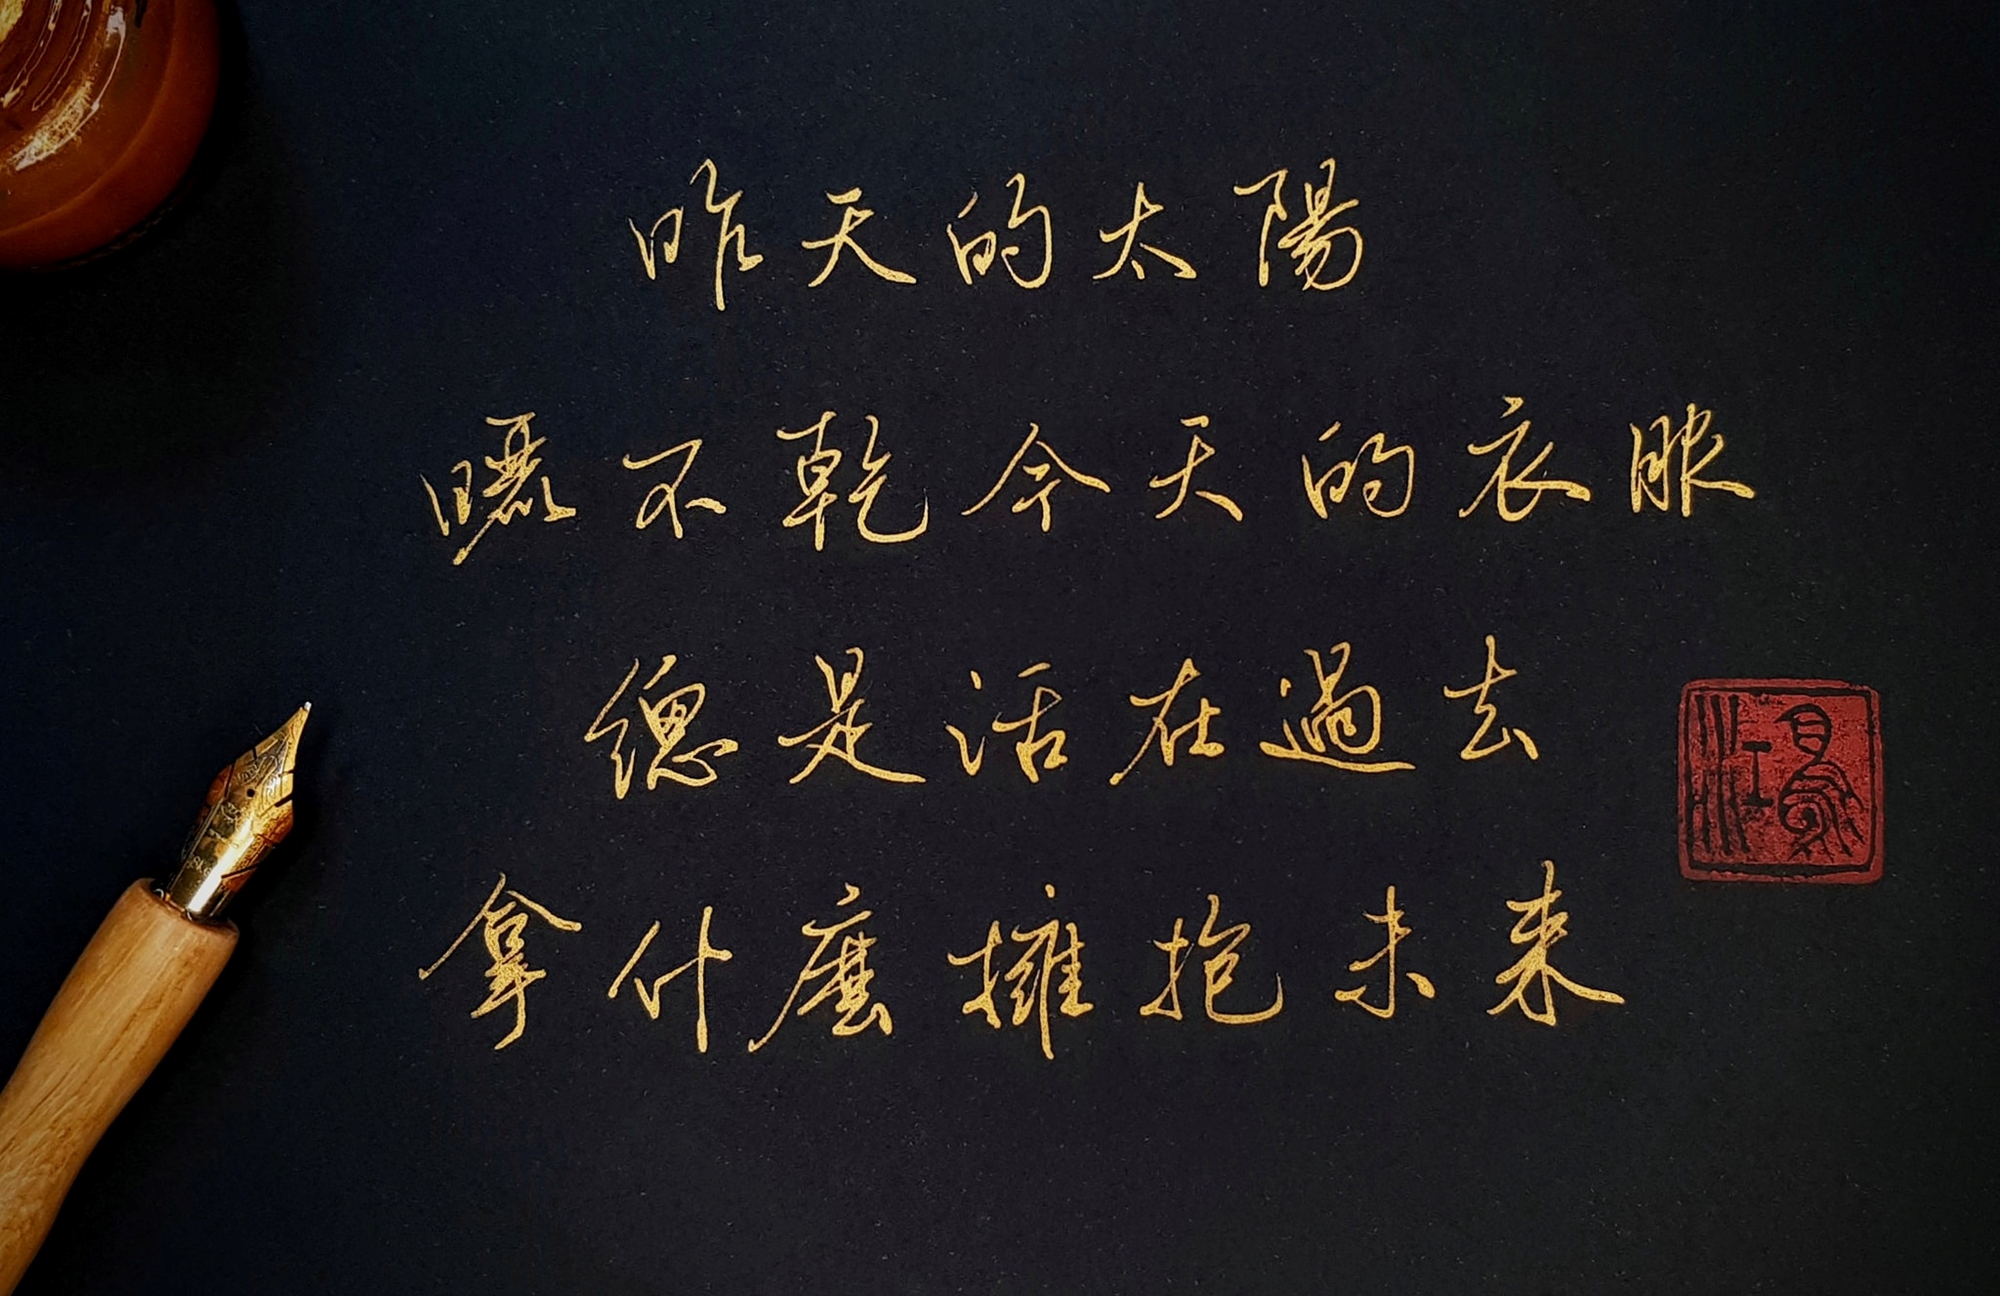 昨天的太陽
曬不乾今天的衣服
總是活在過去
拿什麼擁抱未來